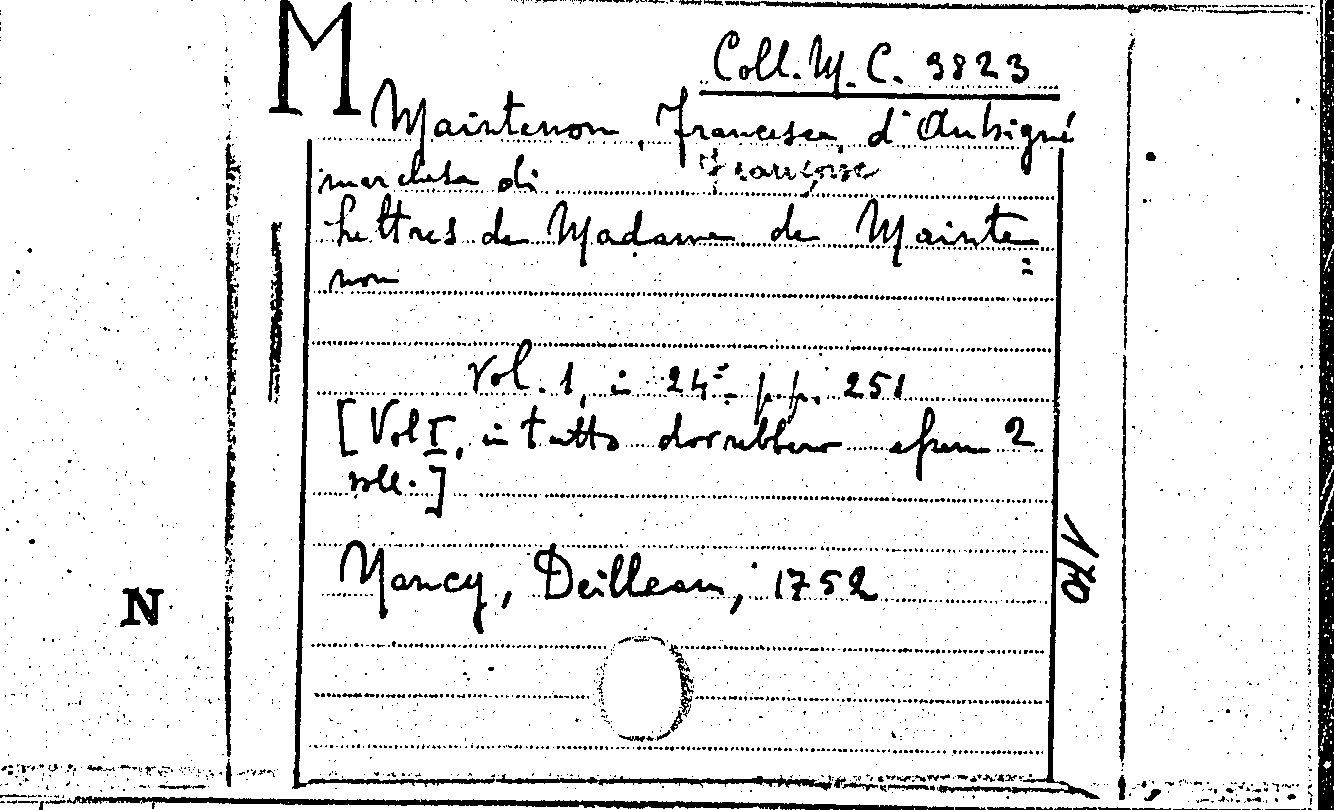 M
Coll. M. C. 3823
Maintenon, Francesca, d'Aubigné
Françoise
marchesa di
Lettres de Madame de Mainte=
non
Vol. 1, in 24° pp. 251
[Vol I, in tutto dovrebbero essere 2
voll.]
Nancy, Deilleau, 1752
N